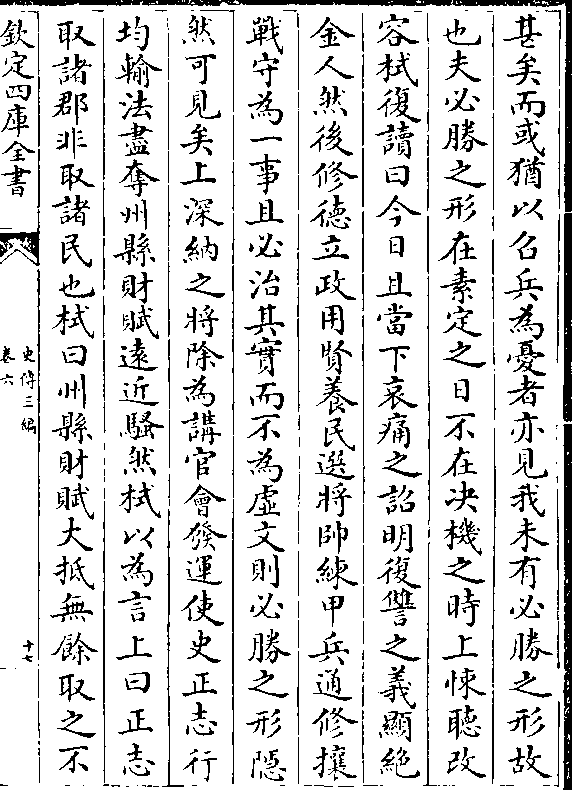 甚矣而或猶以召兵為憂者亦見我未有必勝之形故
也夫必勝之形在素定之日不在决機之時上悚聽改
容栻復讀曰今日且當下哀痛之詔明復讐之義顯絶
金人然後修徳立政用賢養民選將帥練甲兵通修攘
戰守為一事且必治其實而不為虛文則必勝之形隱
然可見矣上深納之將除為講官會發運使史正志行
均輸法盡奪州縣財賦逺近騷然栻以為言上曰正志
取諸郡非取諸民也栻曰州縣財賦大抵無餘取之不
欽定四庫全書
史傳三編
卷六
十七